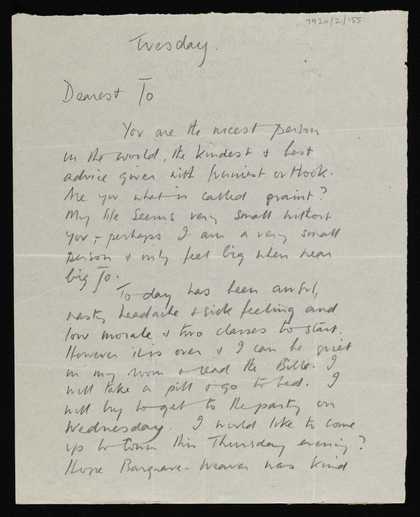 7920/2/155
Tuesday.
Dearest Jo
You are the nicest person
in the world, the kindest & best
advice giver with funniest outlook.
Are you what is called quaint?
My life seems very small without
you, - perhaps I am a very small
person & only feel big when near
big Jo.
To day has been awful,
nasty headache & sick feeling and
low morale & two classes to start.
However it is over & I can be quiet
in my room & read the Bible. I
will take a pill & go to bed. I
will try to get to the party on
Wednesday. I would like to come
up to town this Thursday evening?
Hope Bargrave-Weaver was kind